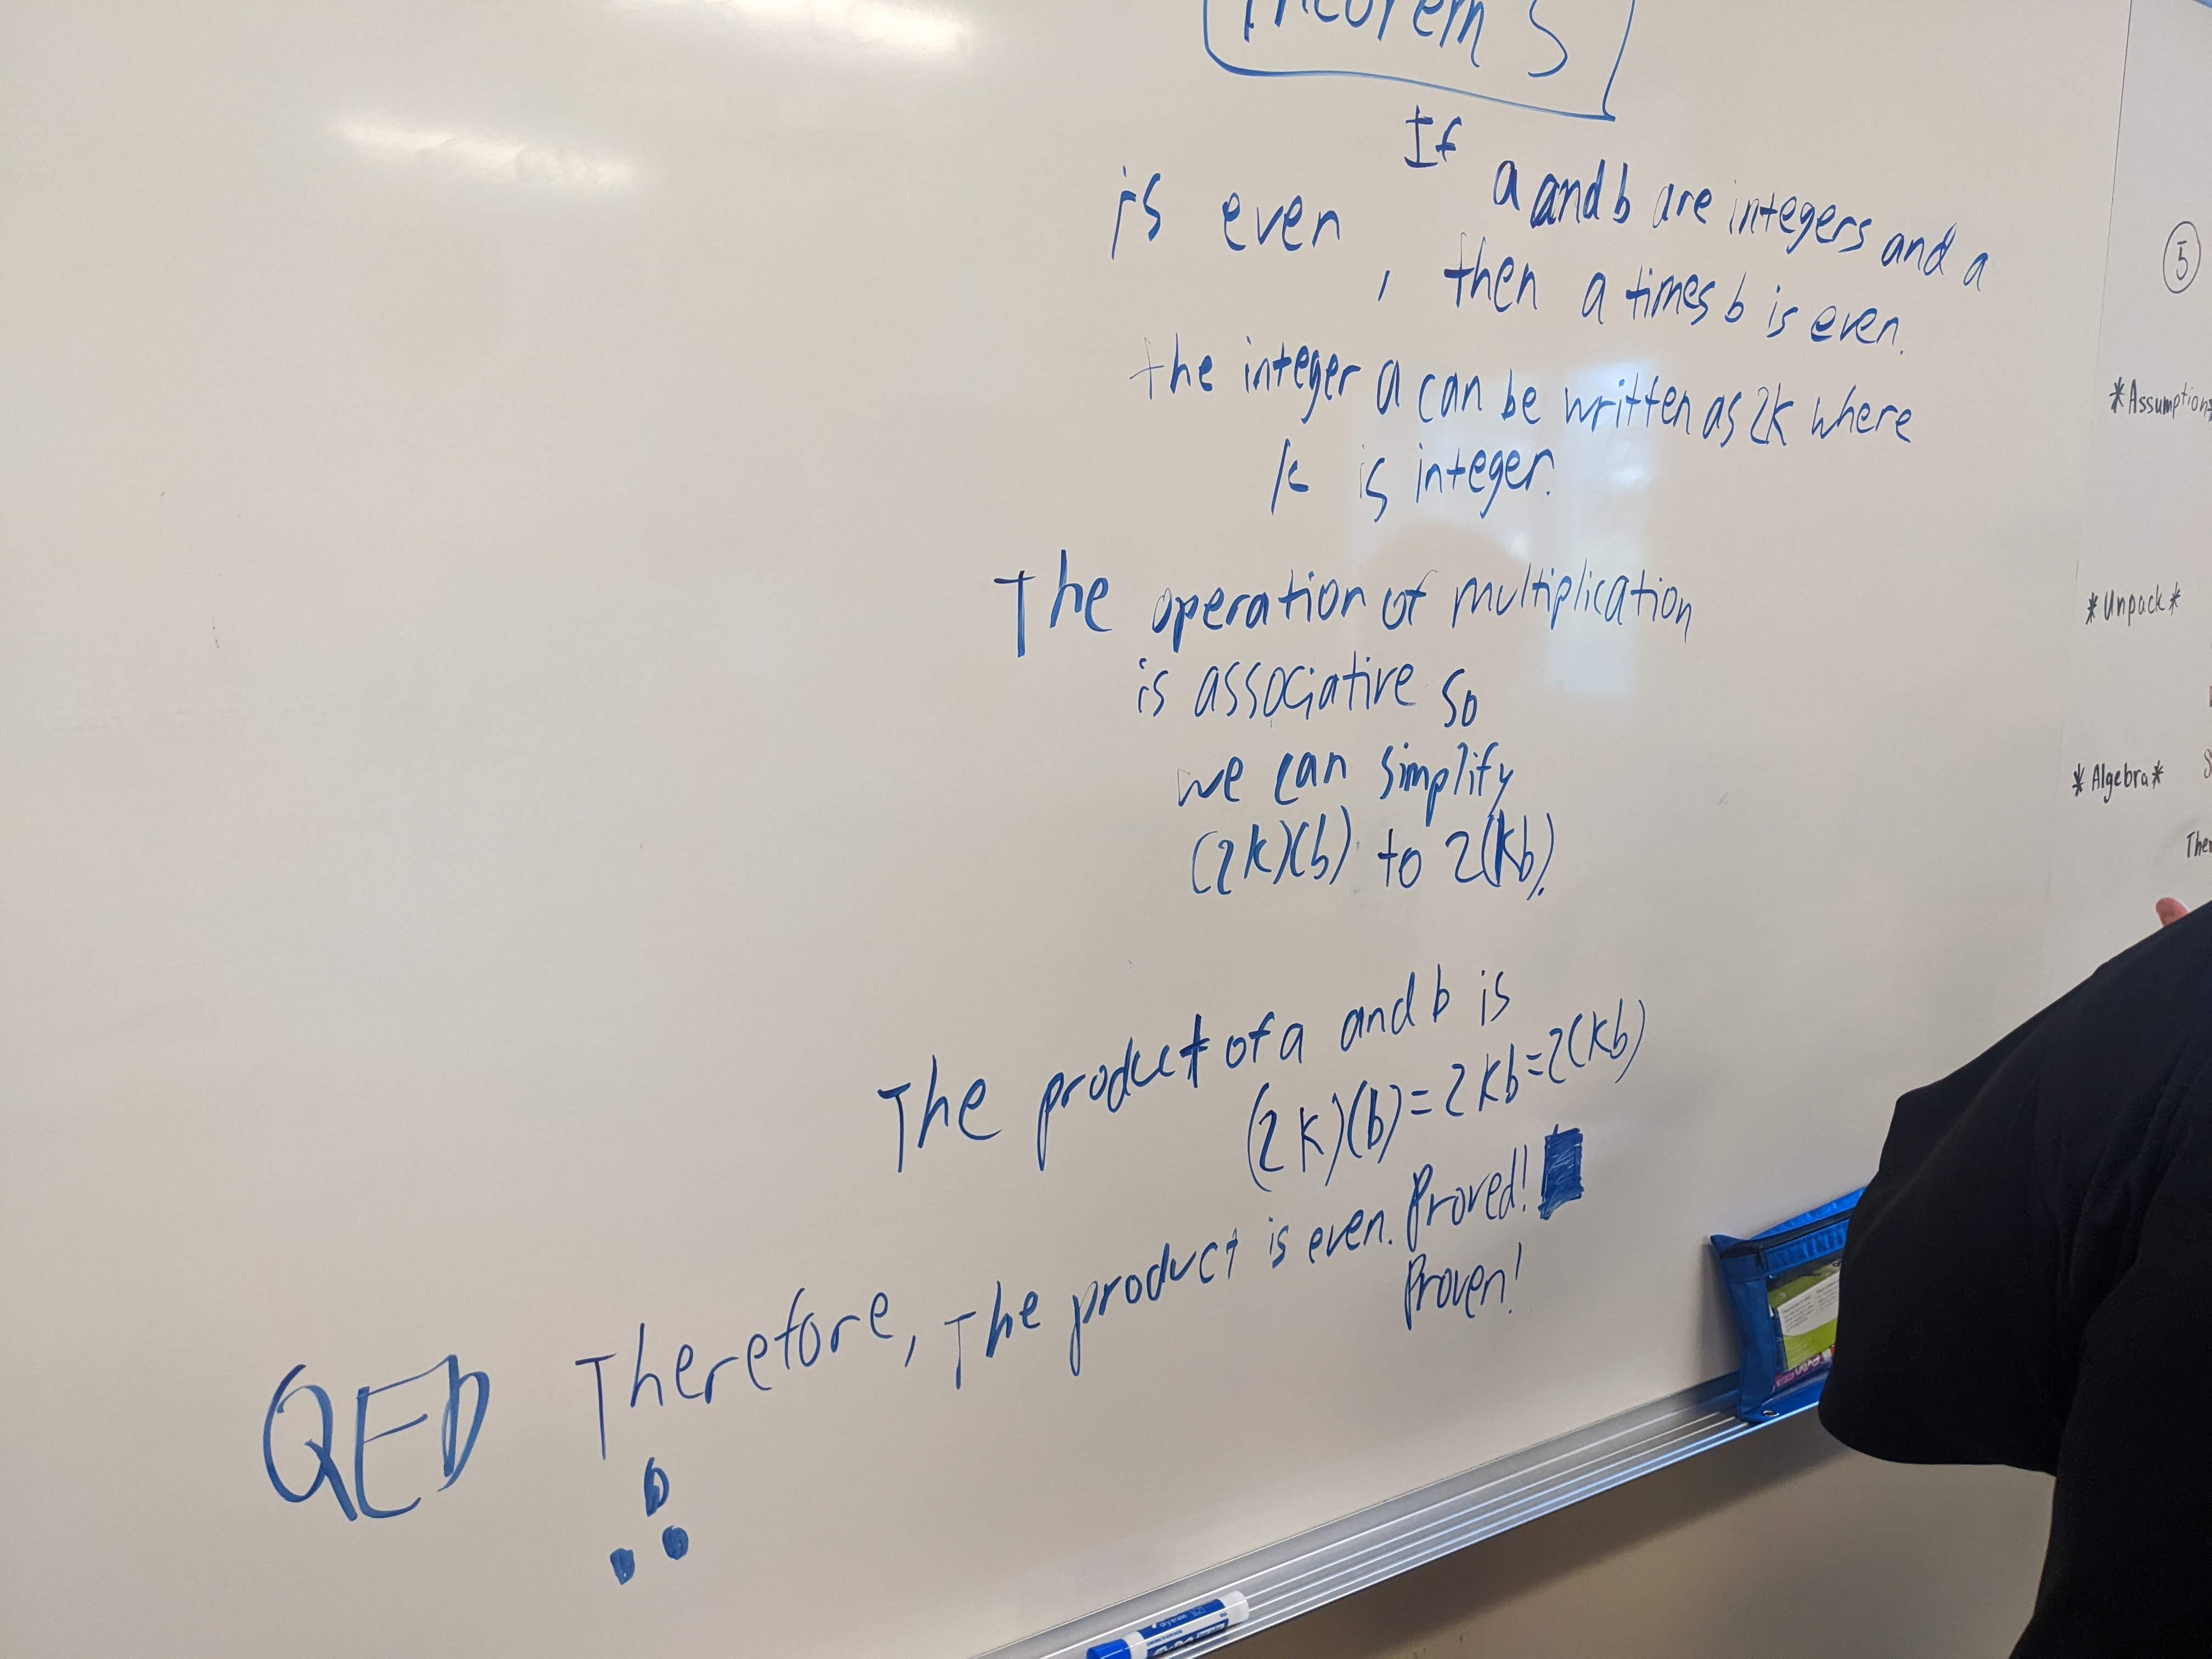 Theorem 5
If a and b are integers and a
is even, then a times b is even.
the integer a can be written as 2k where
k is integer.
The operation of multiplication
is associative so
we can simplify
(2k)(b) to 2(kb).
The product of a and b is
(2k)(b)=2kb=2(kb)
QED Therefore, The product is even. Proved!
Proven!
5
*Assumption
*Unpack*
*Algebra*